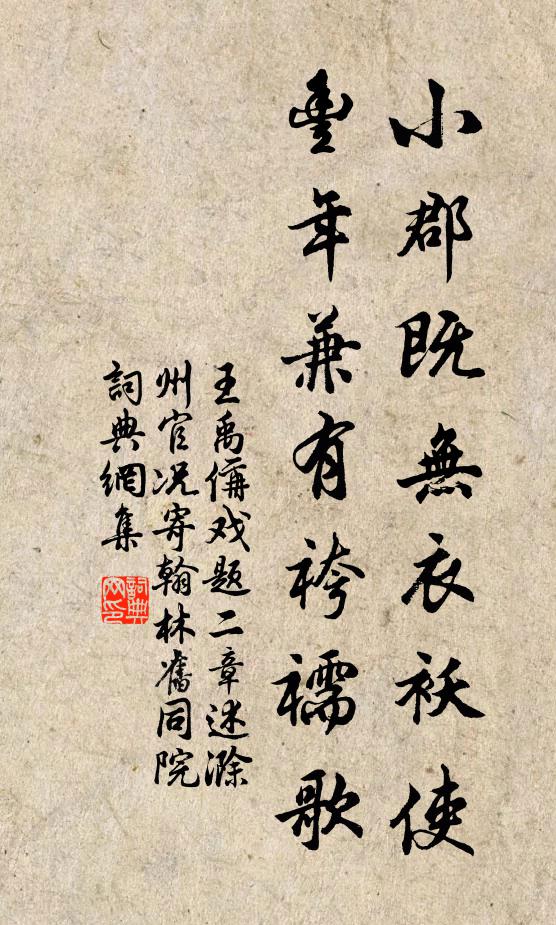 小郡既無衣袄使
豐年兼有袴襦歌
王禹偁戏题二章述滁
州官况寄翰林舊同院
詞典網集
詞典
网印